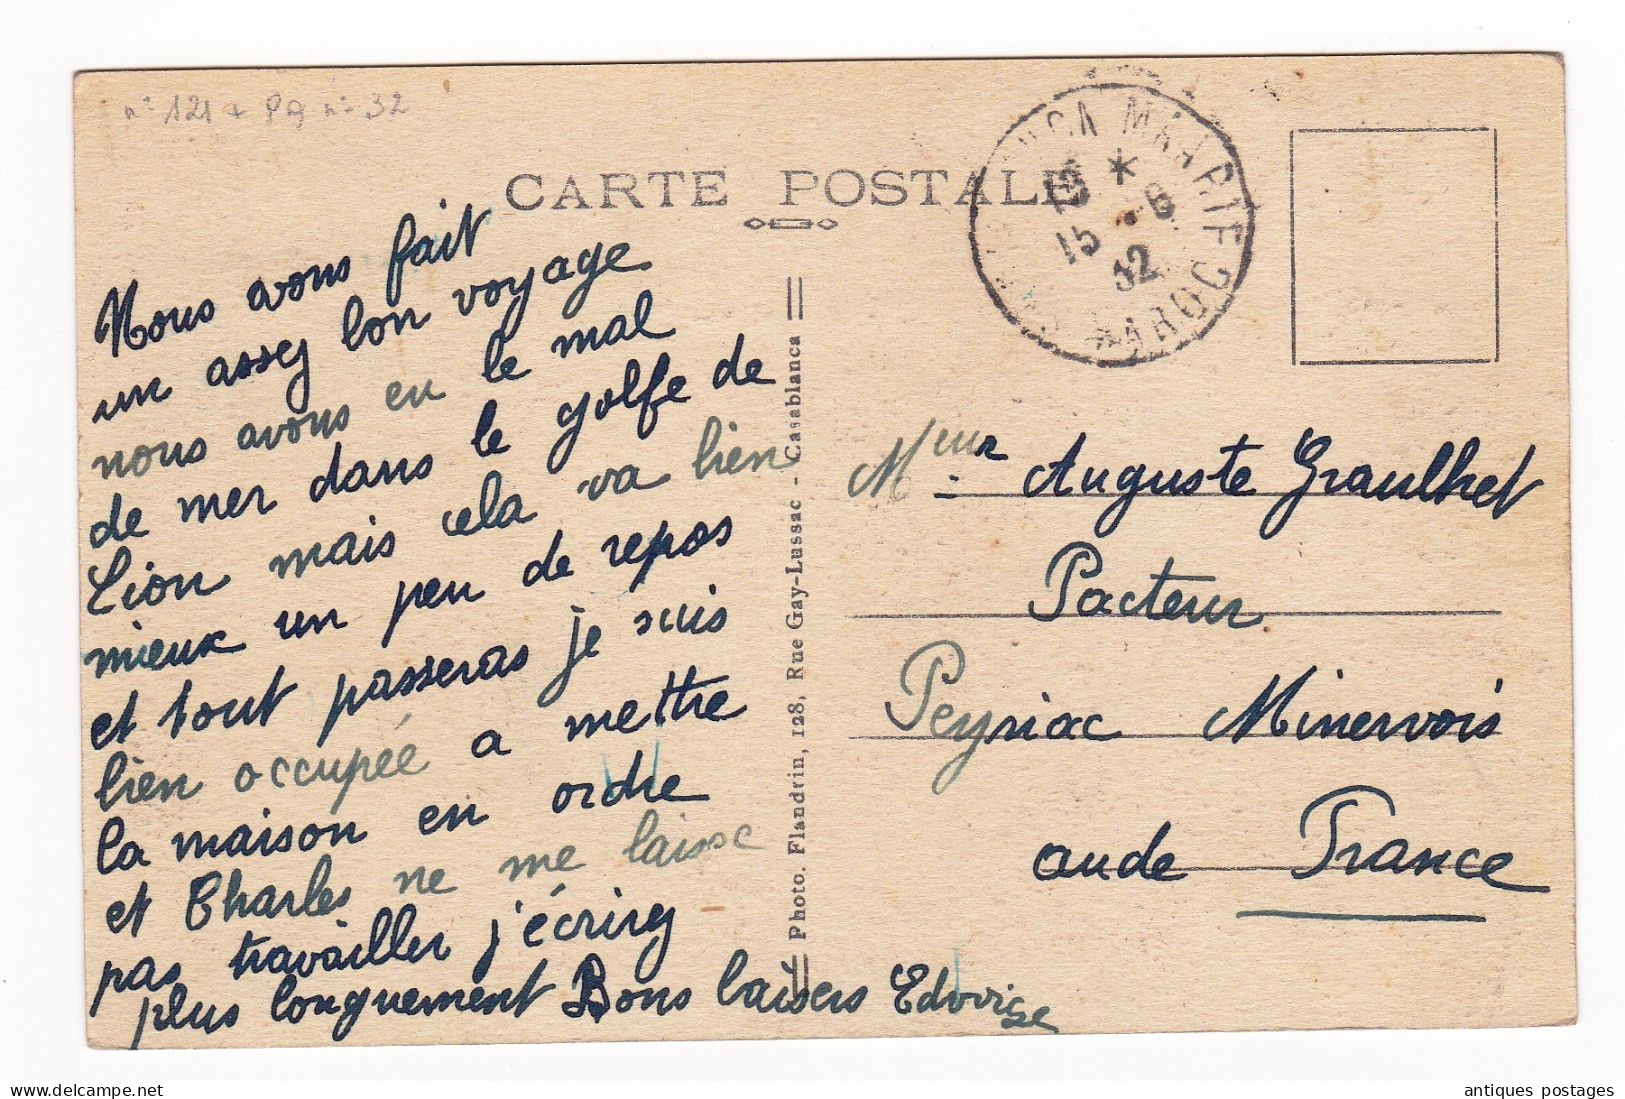 n° 121 + PA n° 32
CARTE POSTALE
MARITF
MAROC
15 - 6
32
Nous avons fait
un assez bon voyage
nous avons eu le mal
de mer dans le golfe de
Lion mais cela va bien
mieux un peu de repos
et tout passeras je suis
bien occupée a mettre
la maison en ordre
et Charles ne me laisse
pas travailler j'écrirez
plus longuement Bons baisers Edovize
Photo. Flandrin, 128, Rue Gay-Lussac - Casablanca
Meur Auguste Graulhet
Facteur
Peyriac Minervois
aude France
antiques postages